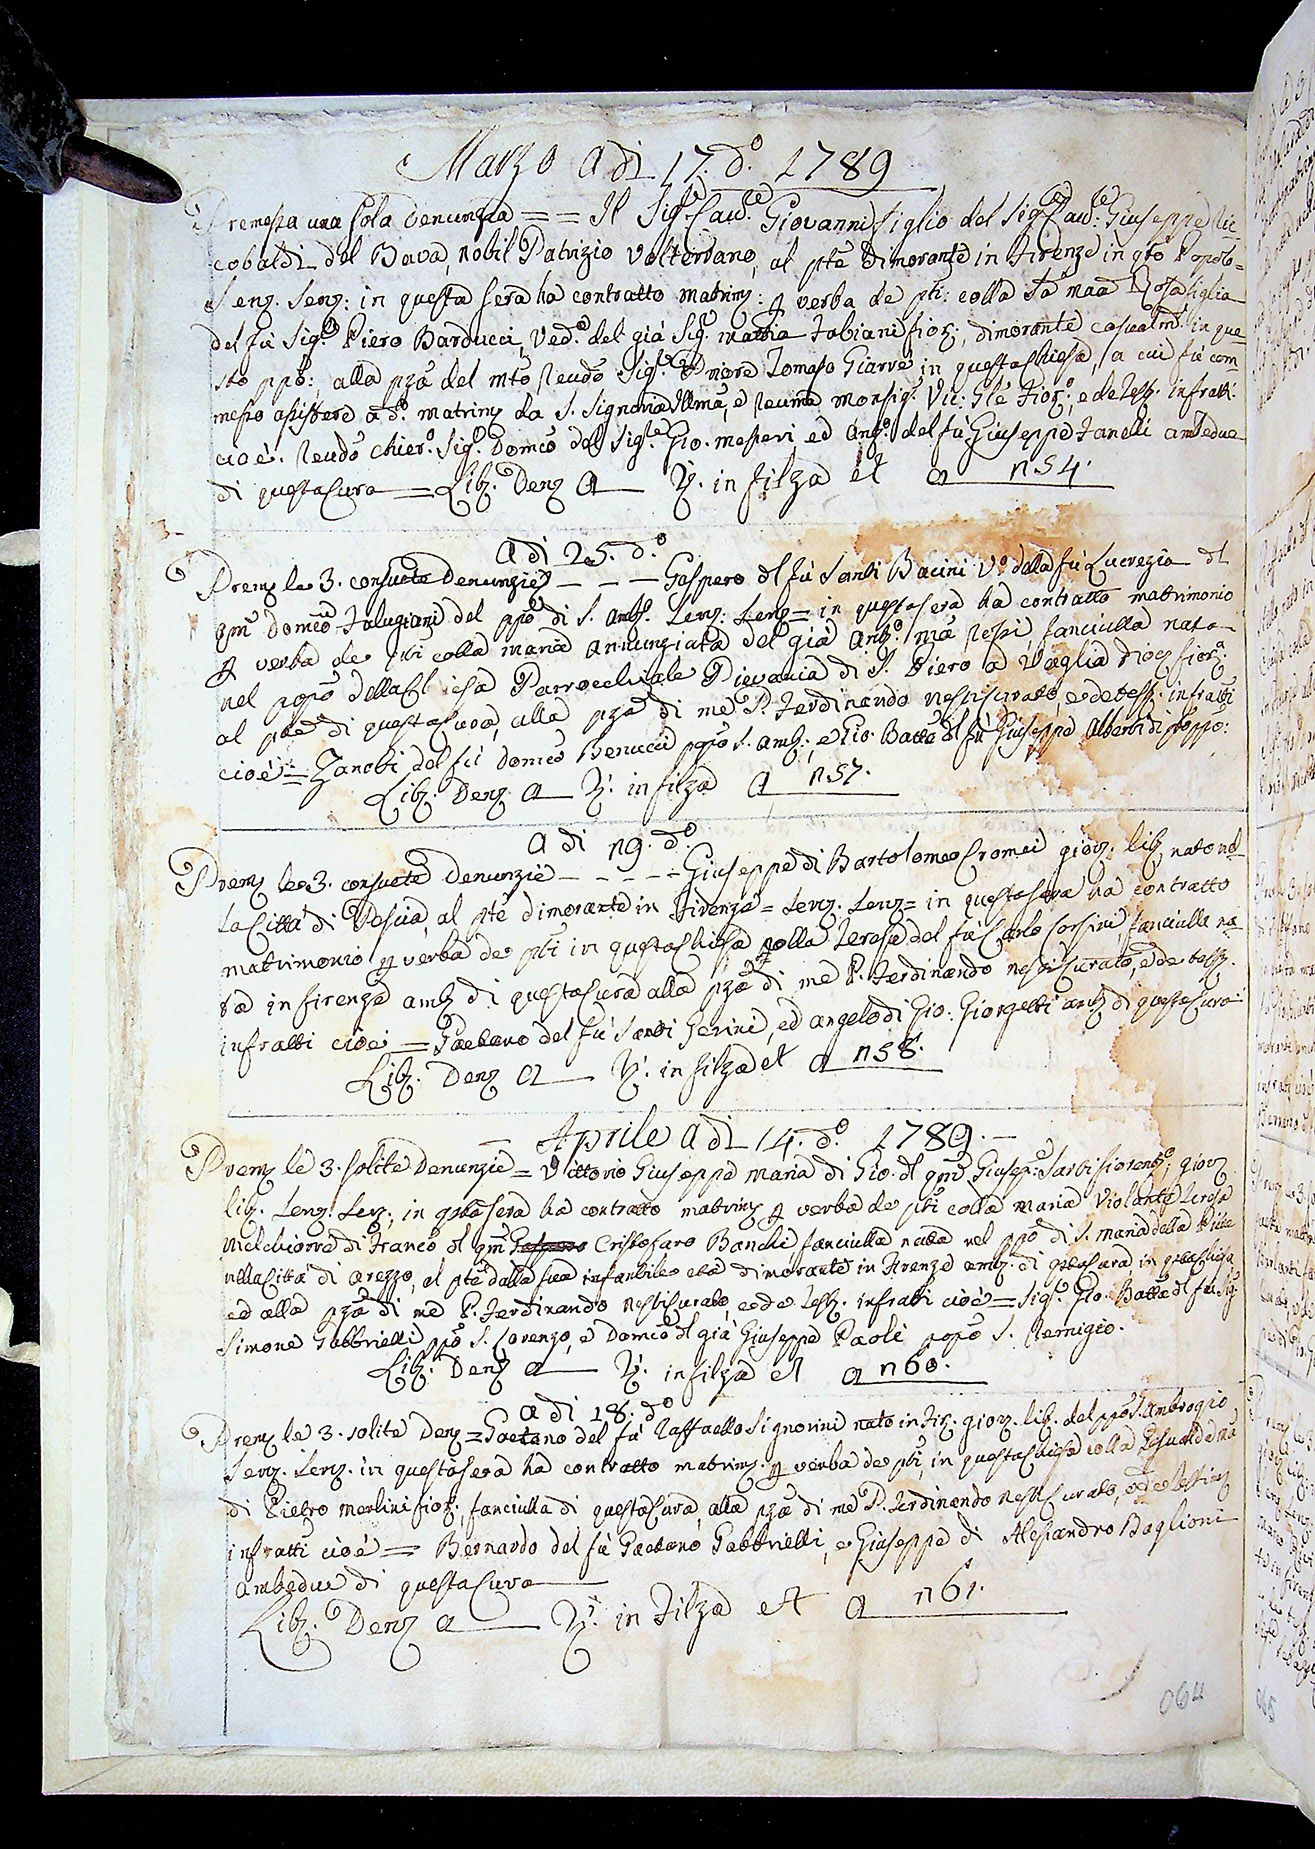 Marzo a dì 17. d.º 1789
Premessa una sola denunzia = = Il Sig.re Cav.re Giovanni figlio del Sig.re Cav.re Giuseppe Ric=
cobaldi del Bava, nobil Patrizio Volterrano, al pnte dimorante in Firenze in qto Popolo=
Serv. Serv: in questa sera ha contratto matrim: p verba de pnti: colla Sra Maa Rosa figlia
del fù Sig.re Piero Barducci, Ved.a del già Sig.re Mattia Fabiani fior:, dimorante casualmte in que=
sto ppõ: alla pza del mto Revdo Sig.re Priore Tomaso Giarrè in questa Chiesa, a cui fù com
messo assistere a d.º matrim da S. Signoria Illma, e Revma Monsig.re Vic: Gle Fior:, e de Test. infratti
cioè. Revdo Chier.º Sig.re Domco del Sig.re Gio. Masieri ed Ant.º del fù Giuseppe Fanelli ambedue
di questa Cura = Lib. Denz a in filza et a n 54.
a dì 25. d.º
Prem le 3. consuete denunzie – – – Gaspero del fù Santi Bacini V.º della fù Lucrezia dl
qm Domco Falugiani del ppõ di S. Amb. Serv: Serv = in questa sera ha contratto matrimonio
p verba de pnti colla Maria Annunziata del già Ant.º Ma Ressi, fanciulla nata
nel popõ della Chiesa Parrocchiale Pievania di S. Piero a Vaglia Dioc fior.a
al pnte di questa Cura, alla pza di me P. Ferdinando Nesti Curato, e de test. infratti
cioè = Zanobi del fù Domco Benucci popõ S. Amb:, e Gio. Batta dl fù Giuseppe Alberti di qto ppo:
Lib. Denz. a in filza a n 57.
a di 29. d.º
Prem le 3. consuete denunzie – – – – – Giuseppe di Bartolomeo Cromei giov. lib. nato nel=
la Città di Pescia, al pnte dimorante in Firenze = Serv. Serv = in questa sera ha contratto
matrimonio p verba de pnti in questa Chiesa colla Teresa del fù Carlo Corsini, fanciulla na=
ta in firenze amb di questa Cura alla pza di me P. Ferdinando Nesti Curato, e de test.
infratti cioè = Gaetano del fù Santi Gerini, ed Angelo di Gio. Giorgetti amb di questa Cura
Lib. Denz a in filza et a n 58.
– Aprile a dì 14. d.º 1789. –
Prem le 3. solite denunzie = Vittorio Giuseppe Maria di Gio. dl qm Giusep.e Sarti fiorent.º, giov.
lib. Serv. Serv:, in qta sera ha contratto matrim p verba de pnti colla Maria Violante Teresa
Melchiorra di Franco dl qm Gaspero Cristofaro Banchi fanciulla nata nel ppo di S. Maria della Pieve
nella Città di Arezzo, al pnte dalla sua infantile età dimorante in Firenze amb. di qta Cura in qta Chiesa
ed alla pza di me P. Ferdinando Nesti Curato, e de Test. infratti cioè = Sig.re Gio. Batta dl fù Sig.
Simone Gabbrielli ppo S. Lorenzo, e Domco dl già Giuseppe Paoli popõ S. Remigio.
Lib. Denz a in filza et a n 60.
a di 18. d.º
Prem le 3. solite Denz = Gaetano del fù Raffaello Signorini nato in Fir. giov. lib. del ppo S. Ambrogio
Serv. Serv. in questa sera ha contratto matrim. p verba de pnti, in questa Chiesa colla Gesualda Ma
di Pietro Merlini fior:, fanciulla di questa Cura, alla pza di me P. Ferdinando Nesti Curato, e de Testim
infratti cioè = Bernardo del fù Gaetano Gabbrielli, e Giuseppe di Alessandro Baglioni
ambedue di questa Cura
Lib. Denz a in Filza et a n 61.
064